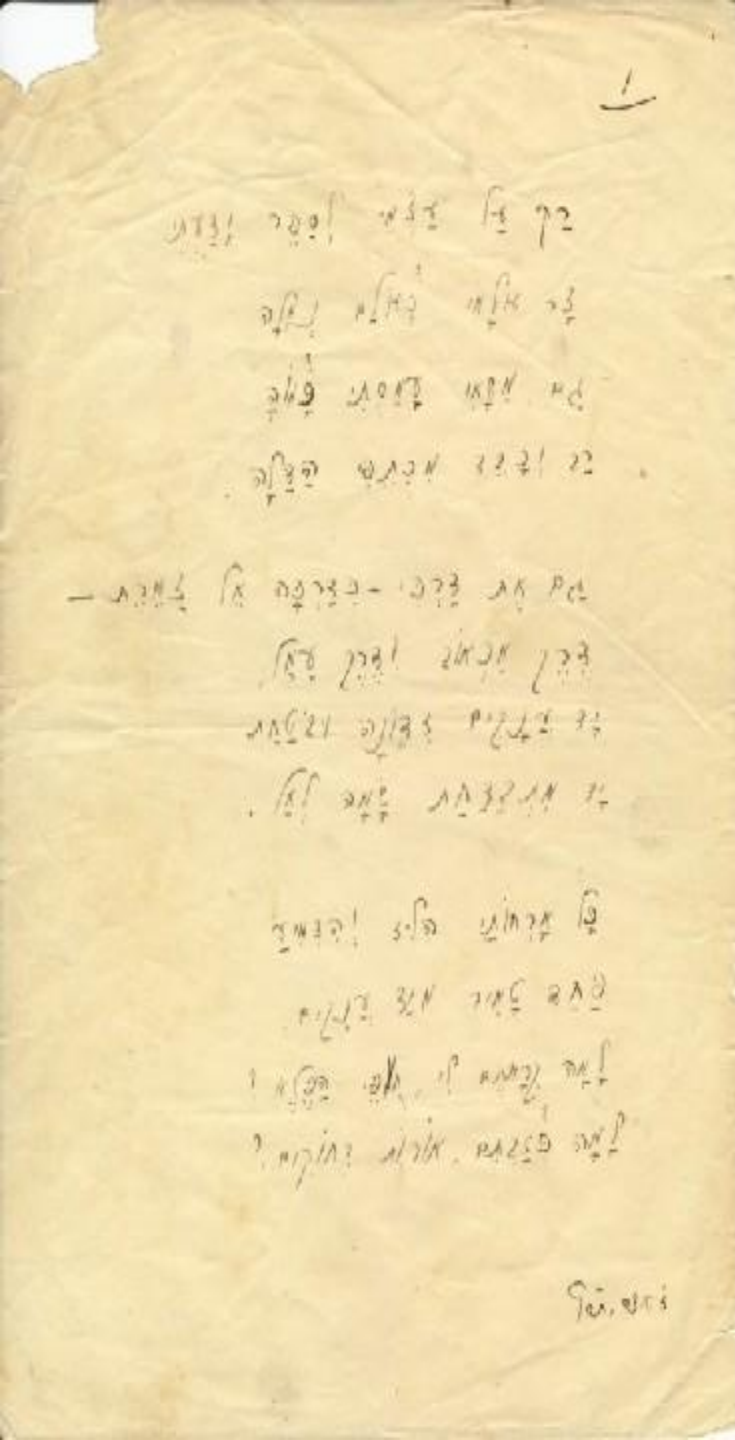 1
רַק עַל עַצְמִי לְסַפֵּר יָדַעְתִּי
צַר עוֹלָמִי כְּעוֹלַם נְמָלָה
גַם מַשָּׂאִי עָמַסְתִּי כָּמוֹהָ
רַב וְכָבֵד מִכְּתֵפִי הַדַּלָּה.
גַם אֶת דַּרְכִּי – כְּדַרְכָּהּ אֶל צַמֶּרֶת –
דֶּרֶךְ מַכְאוֹב וְדֶרֶךְ עָמָל
יַד עֲנָקִים זְדוֹנָה וּבֹטַחַת
יַד מִתְבַּדַּחַת שָׂמָה לְאַל.
כָּל אָרְחוֹתַי הִלִּיז וְהִדְמִיעַ
פַּחַד טָמִיר מִיַּד עֲנָקִים.
לָמָּה קְרָאתֶם לִי, חוֹפֵי הַפֶּלֶא?
לָמָּה כְּזַבְתֶּם, אוֹרוֹת רְחוֹקִים?